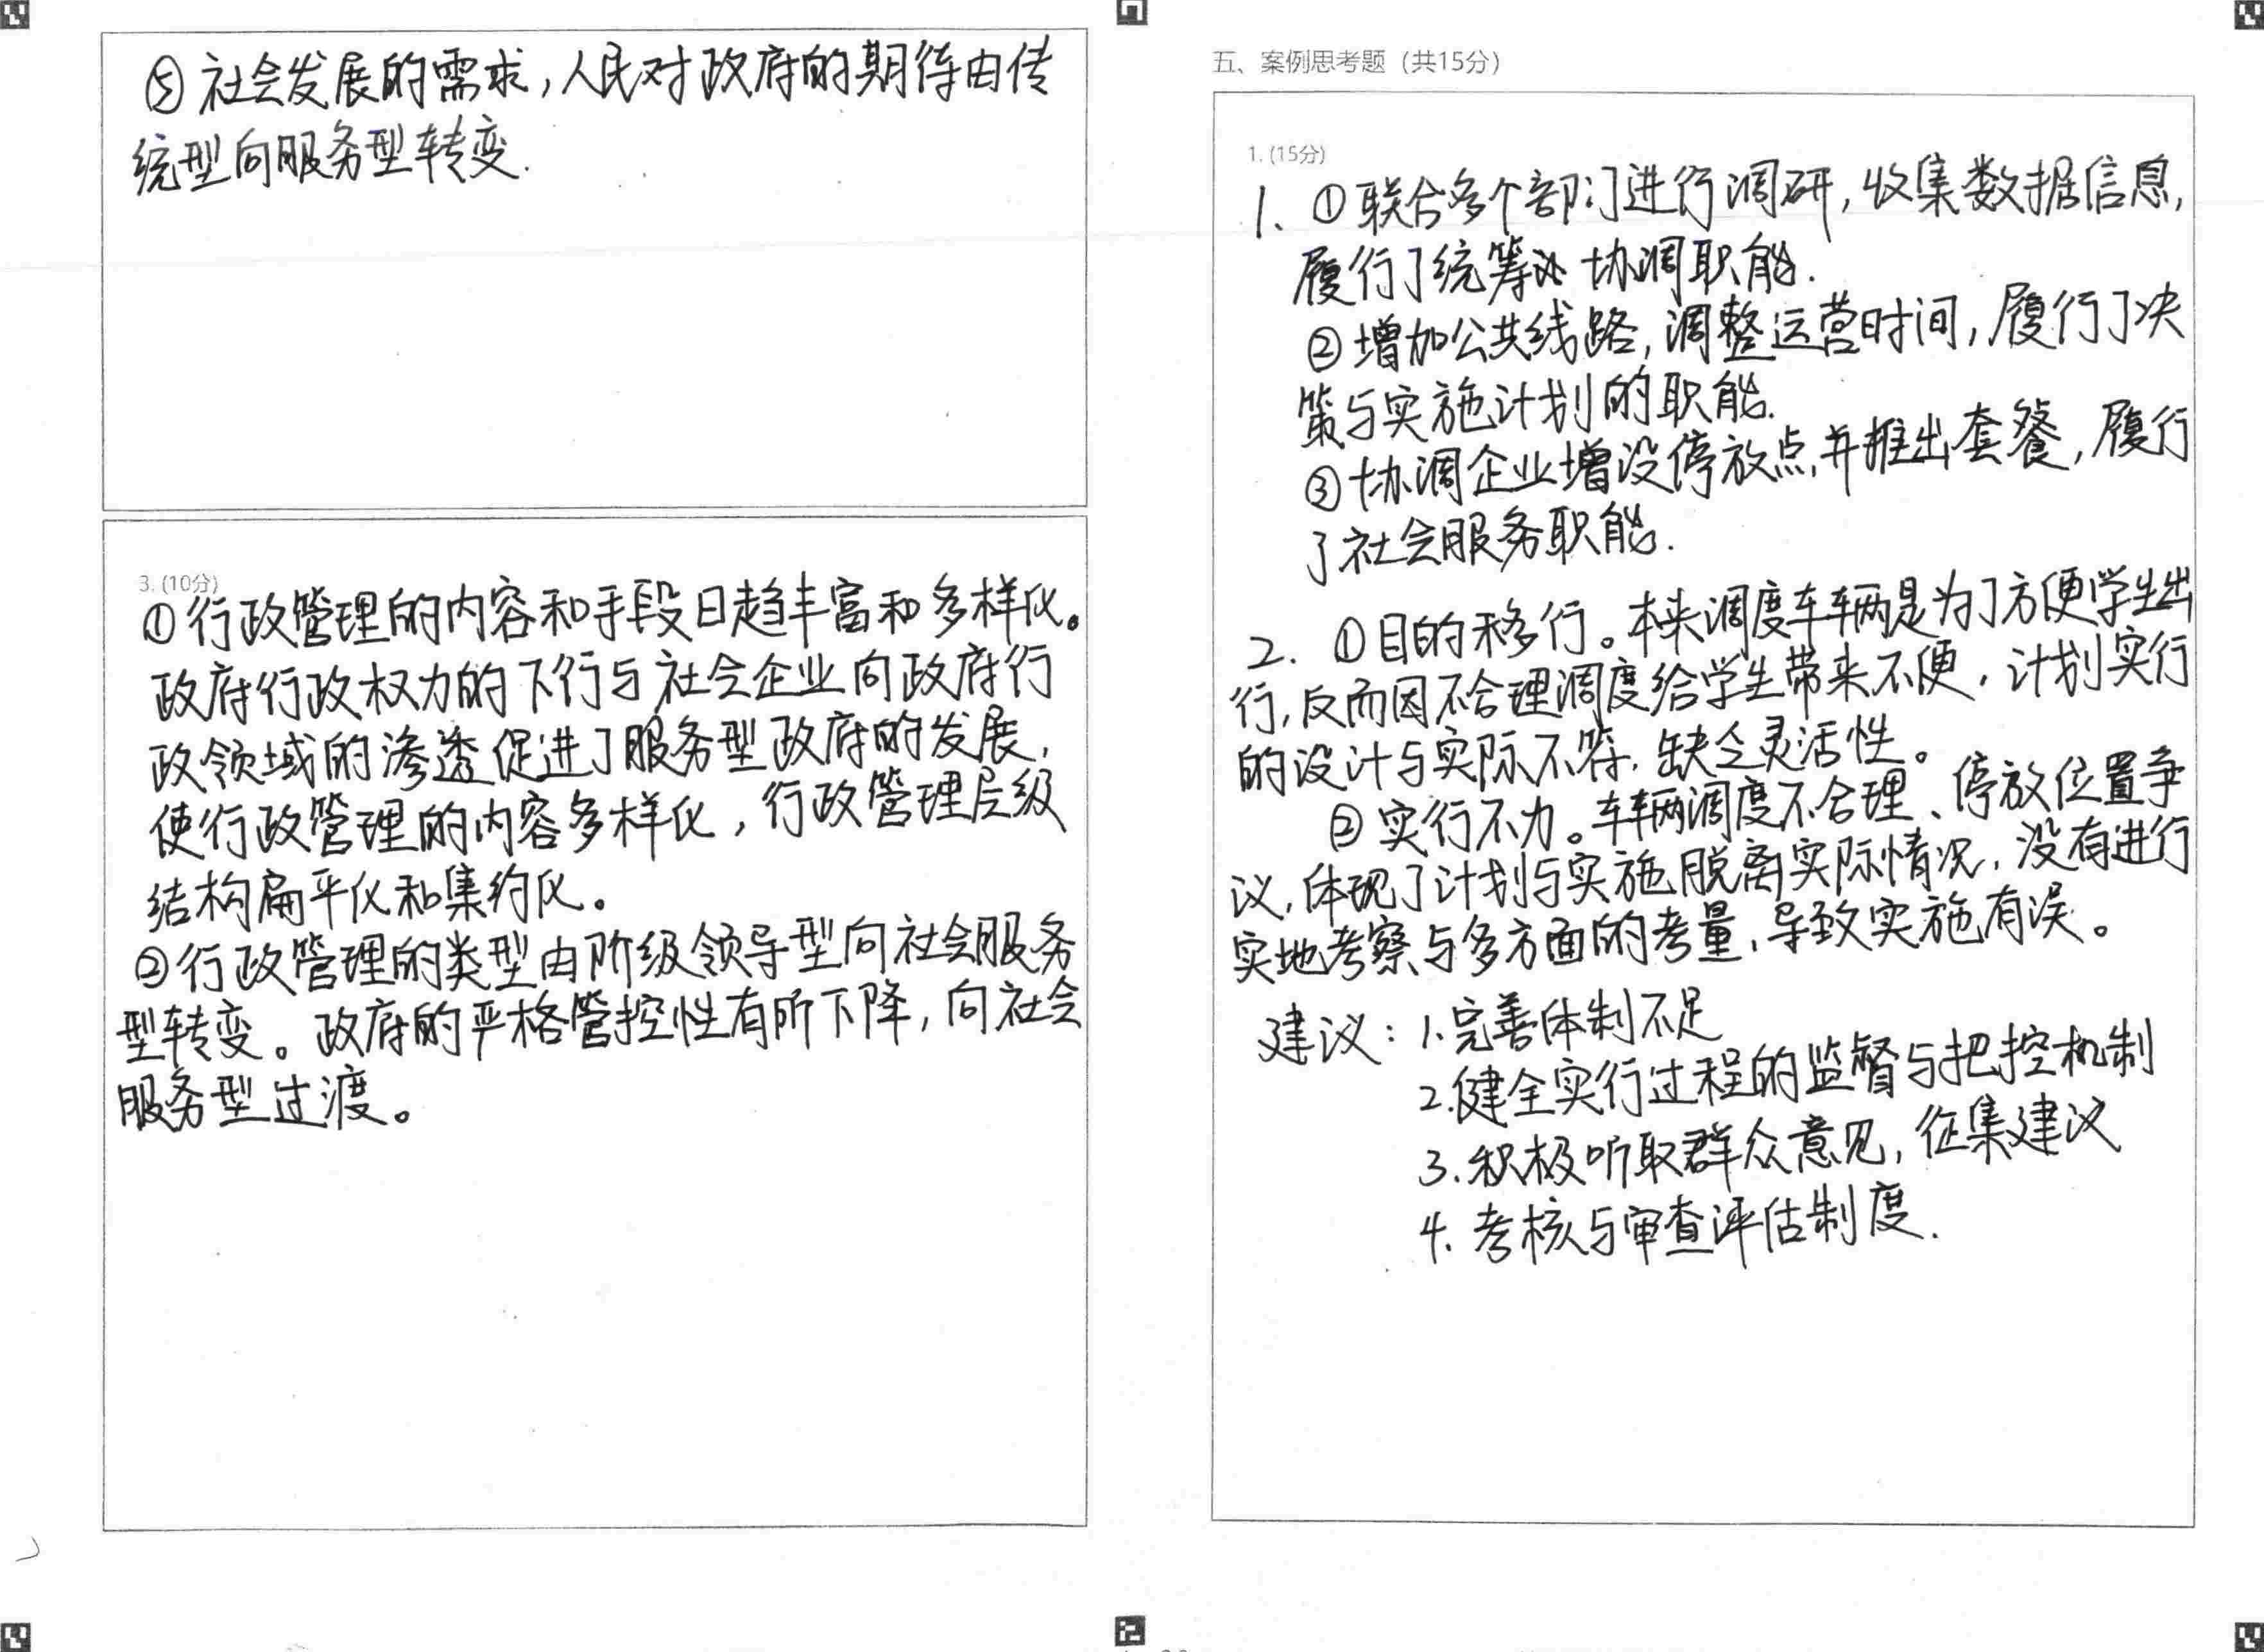 ⑤社会发展的需求,人民对政府的期待由传
统型向服务型转变.
3. (10分)
①行政管理的内容和手段日趋丰富和多样化。
政府行政权力的下行与社会企业向政府行
政领域的渗透促进了服务型政府的发展,
使行政管理的内容多样化,行政管理层级
结构扁平化和集约化。
②行政管理的类型由阶级领导型向社会服务
型转变。政府的严格管控性有所下降,向社会
服务型过渡。
五、案例思考题（共15分）
1. (15分)
1、①联合多个部门进行调研,收集数据信息,
履行了统筹 协调职能.
②增加公共线路,调整运营时间,履行了决
策与实施计划的职能.
③协调企业增设停放点,并推出套餐,履行
了社会服务职能.
2. ①目的移行。本来调度车辆是为了方便学生出
行,反而因不合理调度给学生带来不便,计划实行
的设计与实际不符,缺乏灵活性。
②实行不力。车辆调度不合理、停放位置争
议,体现了计划与实施脱离实际情况,没有进行
实地考察与多方面的考量,导致实施有误。
建议:1.完善体制不足
2.健全实行过程的监督与把控机制
3.积极听取群众意见,征集建议
4.考核与审查评估制度.